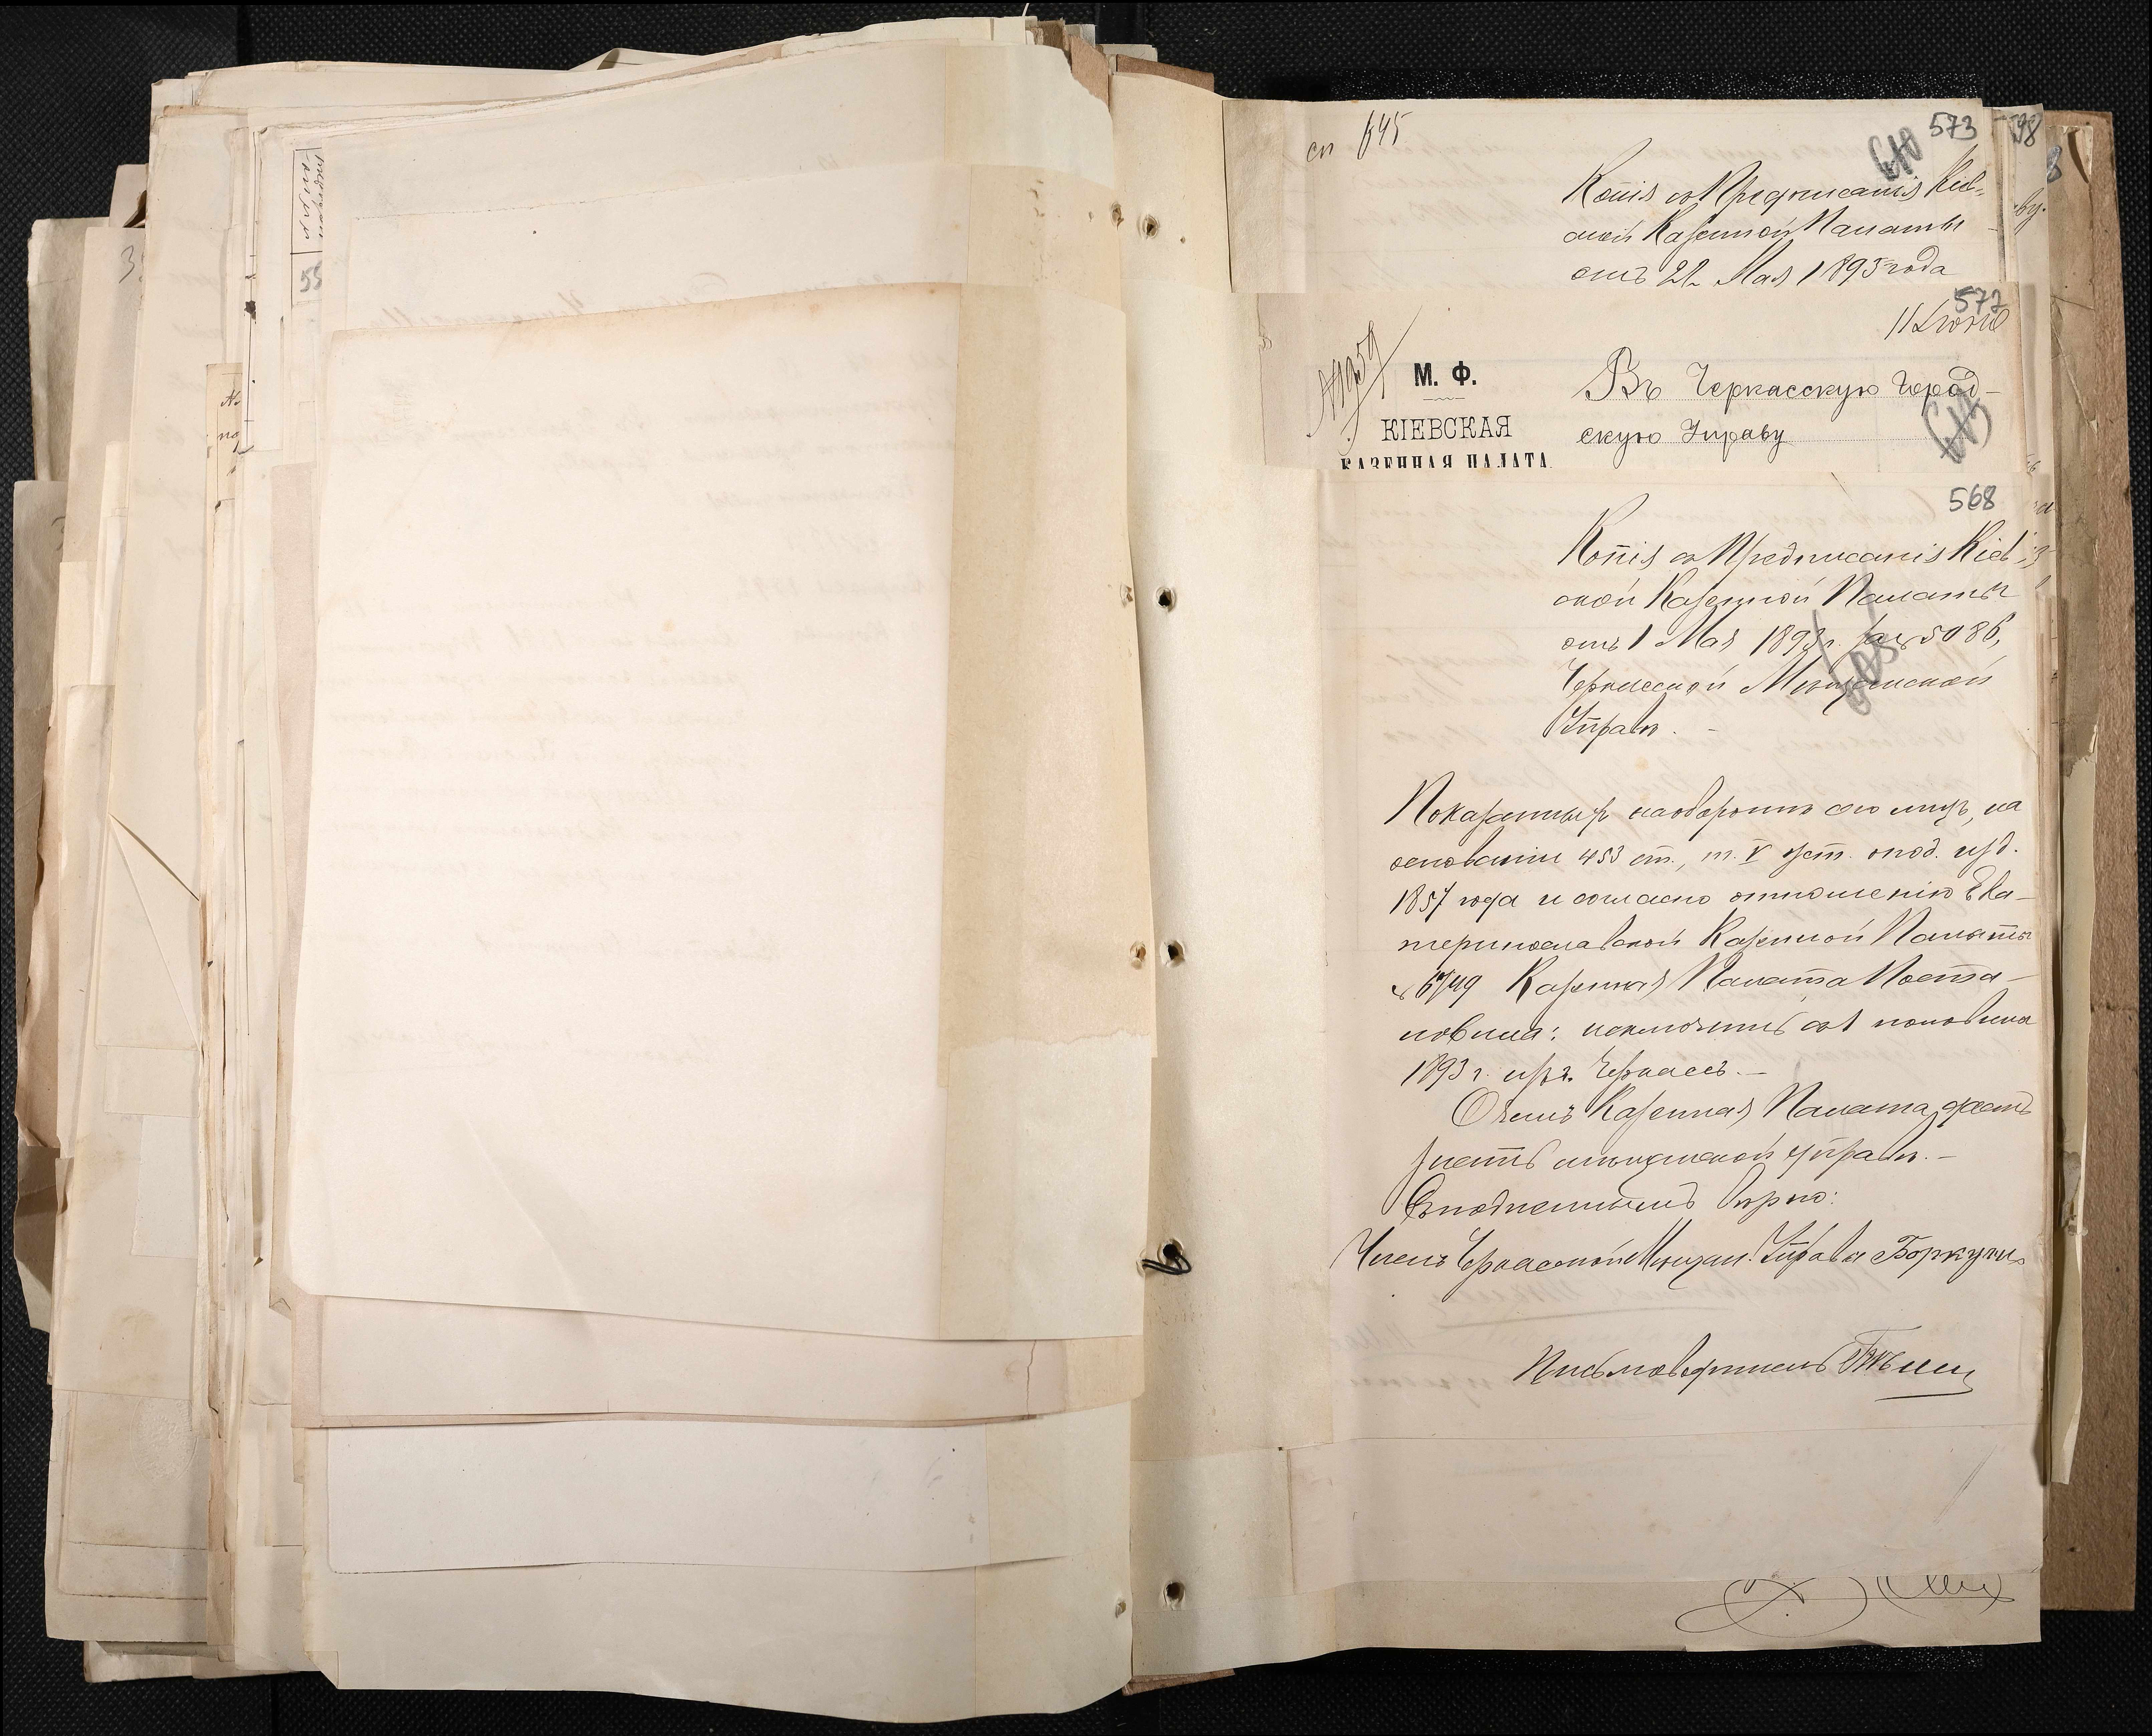 сп 645
573
610
Копія съ Предписанія Кіев-
ской Казенной Палаты
отъ 22 Мая 1895 года
572
11 Іюня
М. Ф.
КІЕВСКАЯ
КАЗЕННАЯ ПАЛАТА
Въ Черкасскую Город-
скую Управу
568
Копія съ Предписанія Кіев
ской Казенной Палаты
отъ 1 Мая 1893 г. за № 5086,
Черкасской Мѣщанской
Управѣ. -
Показанныхъ наоборотѣ сего лицъ, на
основаніи 453 ст., т. V уст. опод. изд.
1857 года и согласно отношенію Ека-
теринославской Казенной Палаты
№ 6749 Казенная Палата Поста-
новила: исключить съ 1 половины
1893 г. изъ г. Черкассъ. -
О чемъ Казенная Палата даетъ
знать мѣщанской управѣ. -
Съ подлиннымъ вѣрно:
Членъ Черкасской Мѣщан. Управы
Письмоводитель